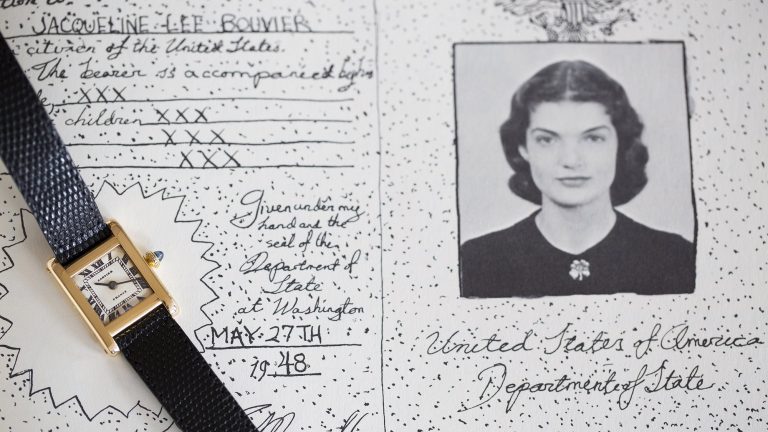 JACQUELINE LEE BOUVIER
citizen of the United States.
The bearer is accompanied by his
XXX
children XXX
XXX
XXX
Given under my
hand and the
seal of the
Department of
State
at Washington
MAY 27TH
1948
United States of America
Department of State
CARTIER